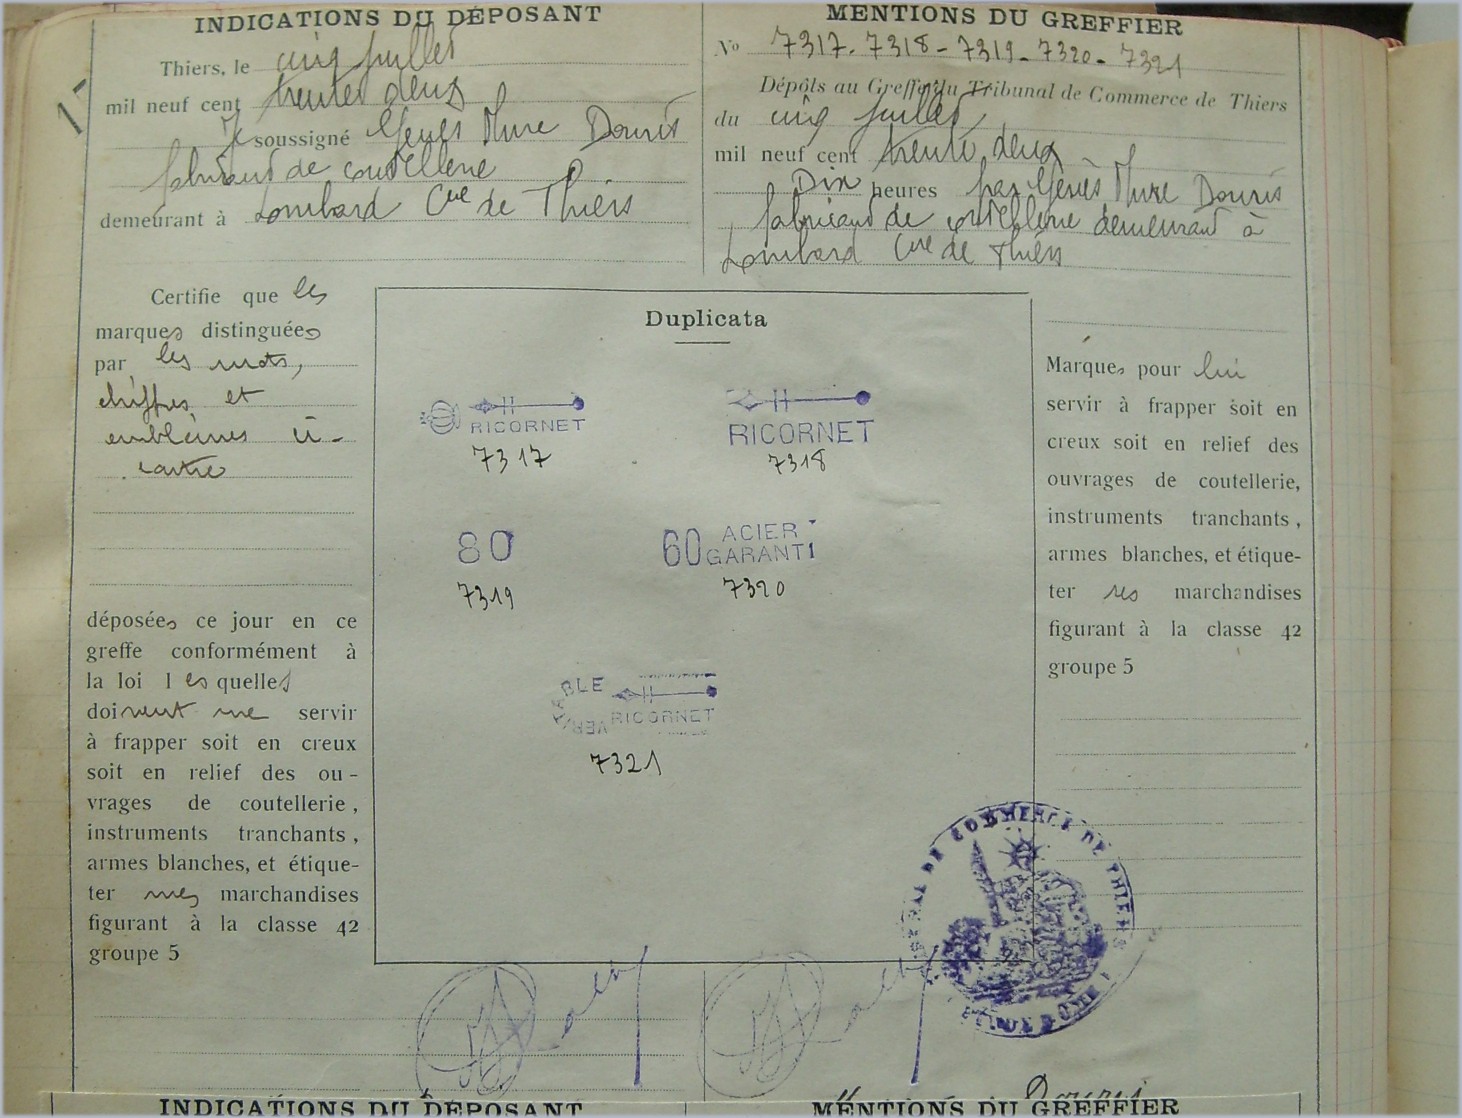 INDICATIONS DU DÉPOSANT
Thiers, le cinq juillet
mil neuf cent trente deux
Je soussigné Genès Mure Douris
fabricant de coutellerie
demeurant à Lombard Cne de Thiers
Certifie que les
marques distinguées
par les mots,
chiffres et
emblèmes ci-
contre
déposées ce jour en ce
greffe conformément à
la loi lesquelles
doivent me servir
à frapper soit en creux
soit en relief des ou-
vrages de coutellerie,
instruments tranchants,
armes blanches, et étique-
ter mes marchandises
figurant à la classe 42
groupe 5
MENTIONS DU GREFFIER
No 7317-7318-7319-7320-7321
Dépôts au Greffe du Tribunal de Commerce de Thiers
du cinq juillet
mil neuf cent trente deux
Dix heures par Genès Mure Douris
fabricant de coutellerie demeurant à
Lombard Cne de Thiers
Duplicata
RICORNET
7317
RICORNET
7318
80
7319
60 ACIER
GARANTI
7320
VERITABLE
RICORNET
7321
Marques pour lui
servir à frapper soit en
creux soit en relief des
ouvrages de coutellerie,
instruments tranchants,
armes blanches, et étique-
ter ses marchandises
figurant à la classe 42
groupe 5
DE COMMERCE DE THIERS
INDICATIONS DU DÉPOSANT
MENTIONS DU GREFFIER